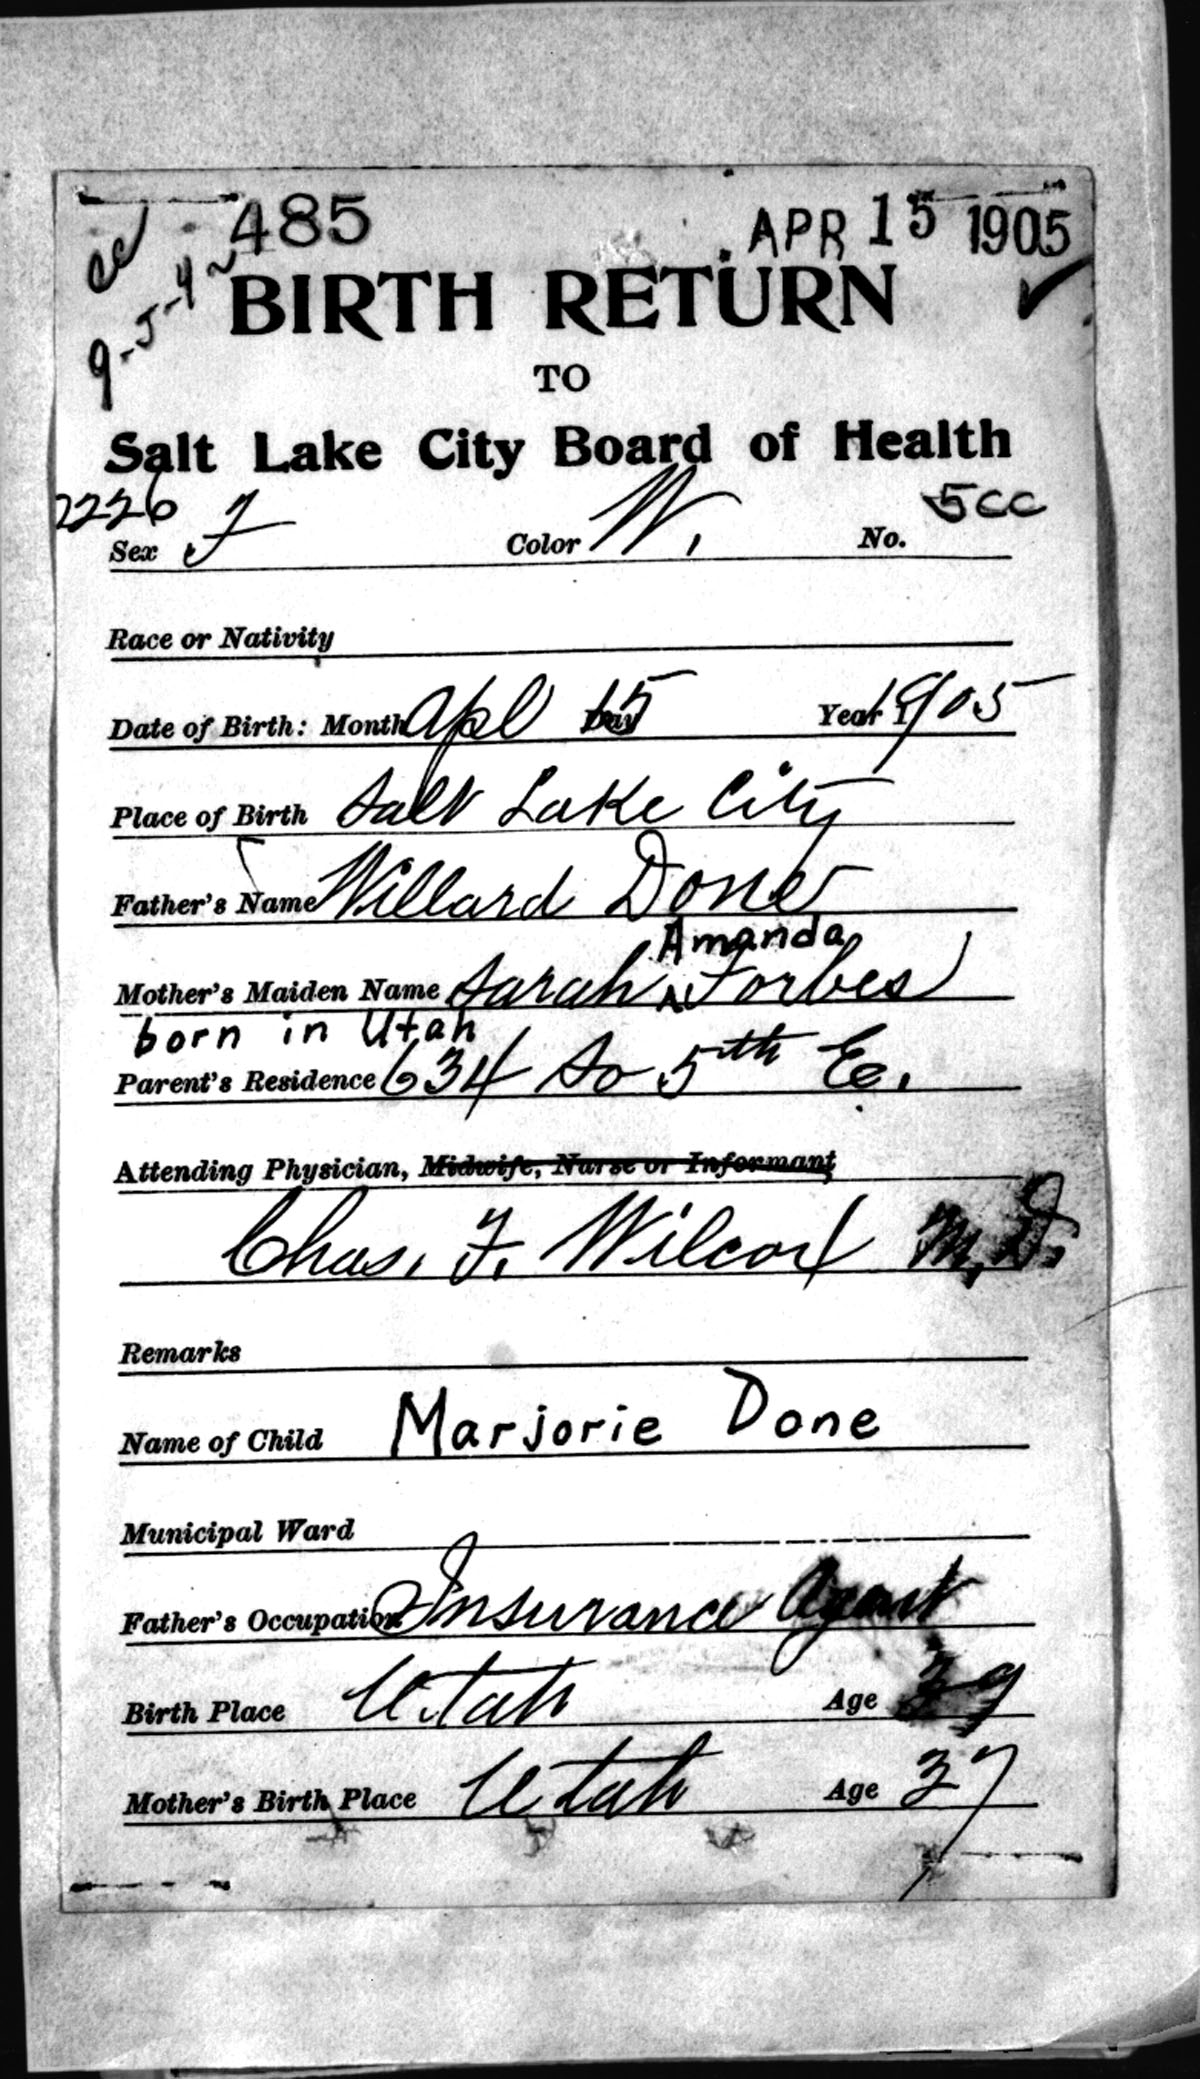 485 APR 15 1905
cc
9-5-42
BIRTH RETURN
TO
Salt Lake City Board of Health
2226 5cc
Sex F Color W. No.
Race or Nativity
Date of Birth: Month Apl Day 15 Year 1905
Place of Birth Salt Lake City
Father's Name Willard Done
Amanda
Mother's Maiden Name Sarah ^ Forbes
born in Utah
Parent's Residence 634 So 5th E.
Attending Physician, Midwife, Nurse or Informant
Chas. F. Wilcox M.D.
Remarks
Name of Child Marjorie Done
Municipal Ward
Father's Occupation Insurance Agent
Birth Place Utah Age 39
Mother's Birth Place Utah Age 37